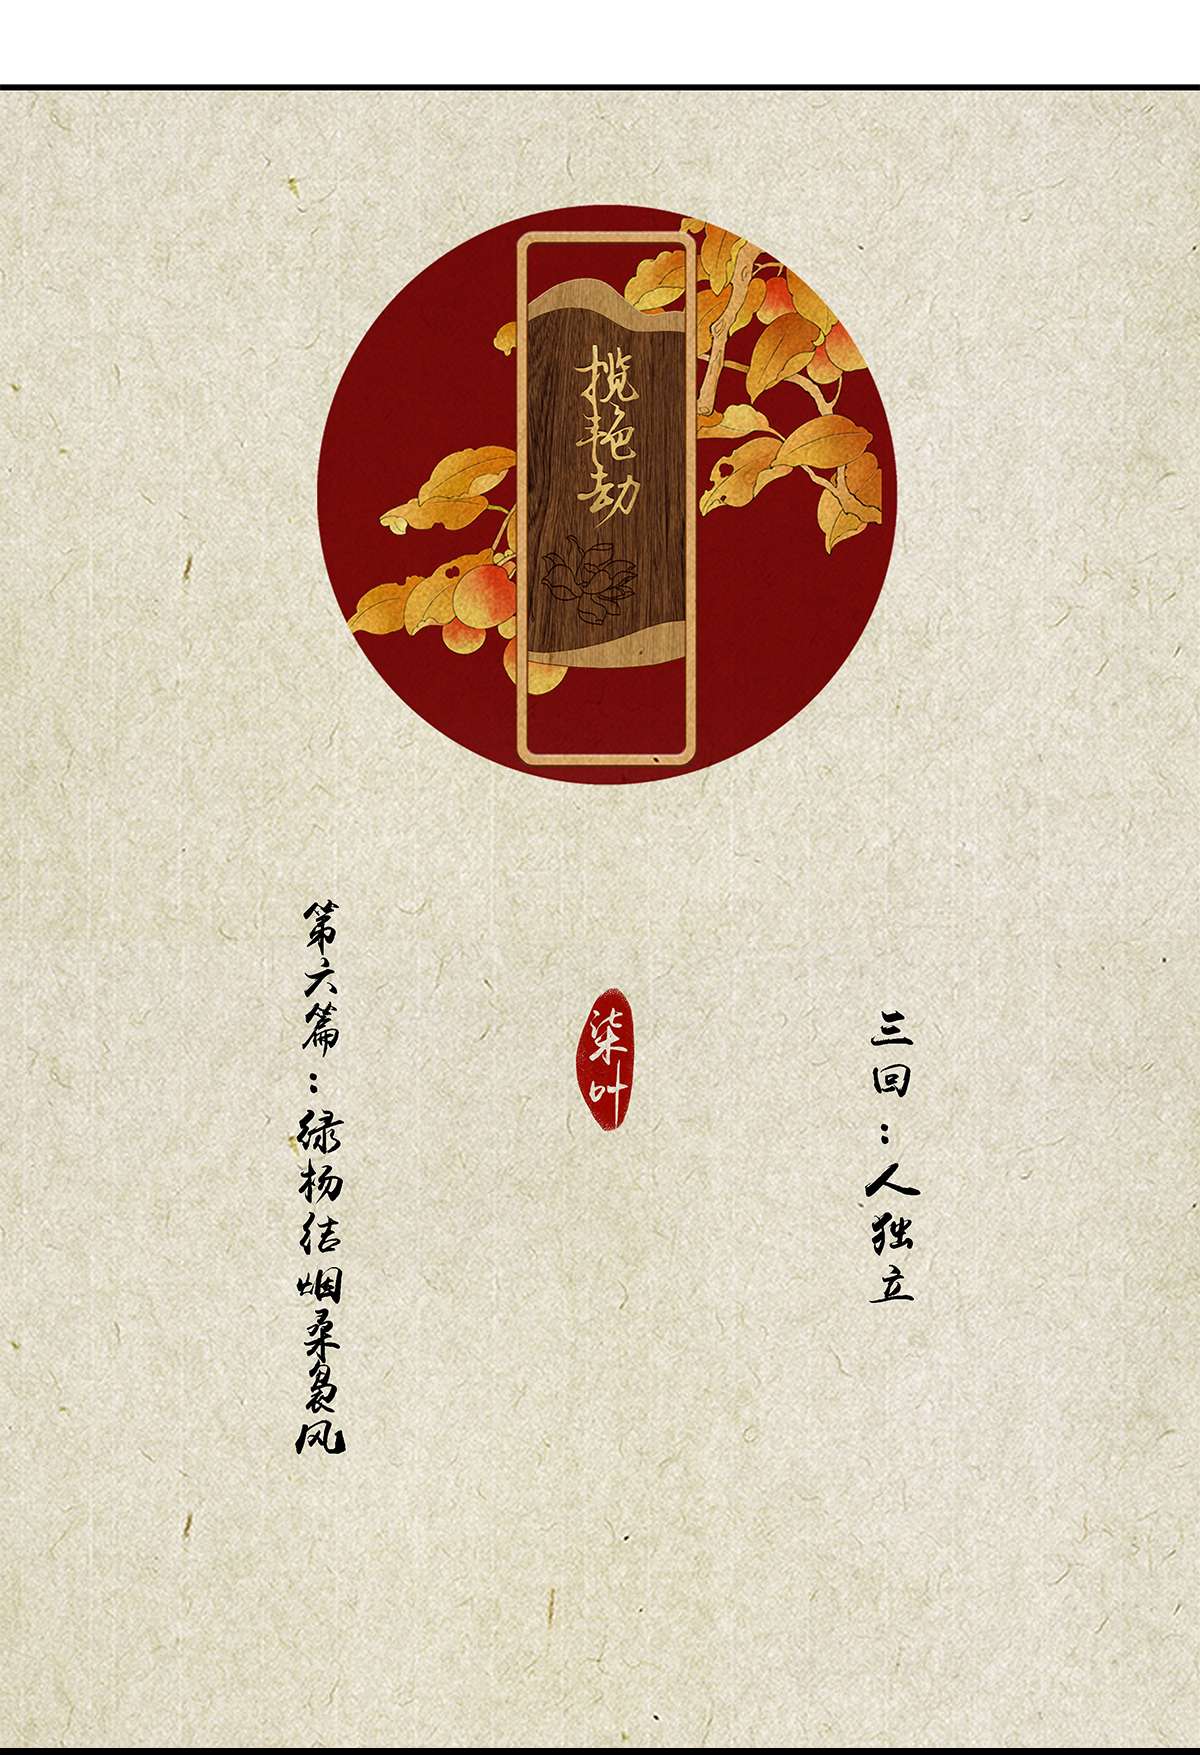 揽艳劫
三回：人独立
柒叶
第六篇：绿杨结烟桑袅风